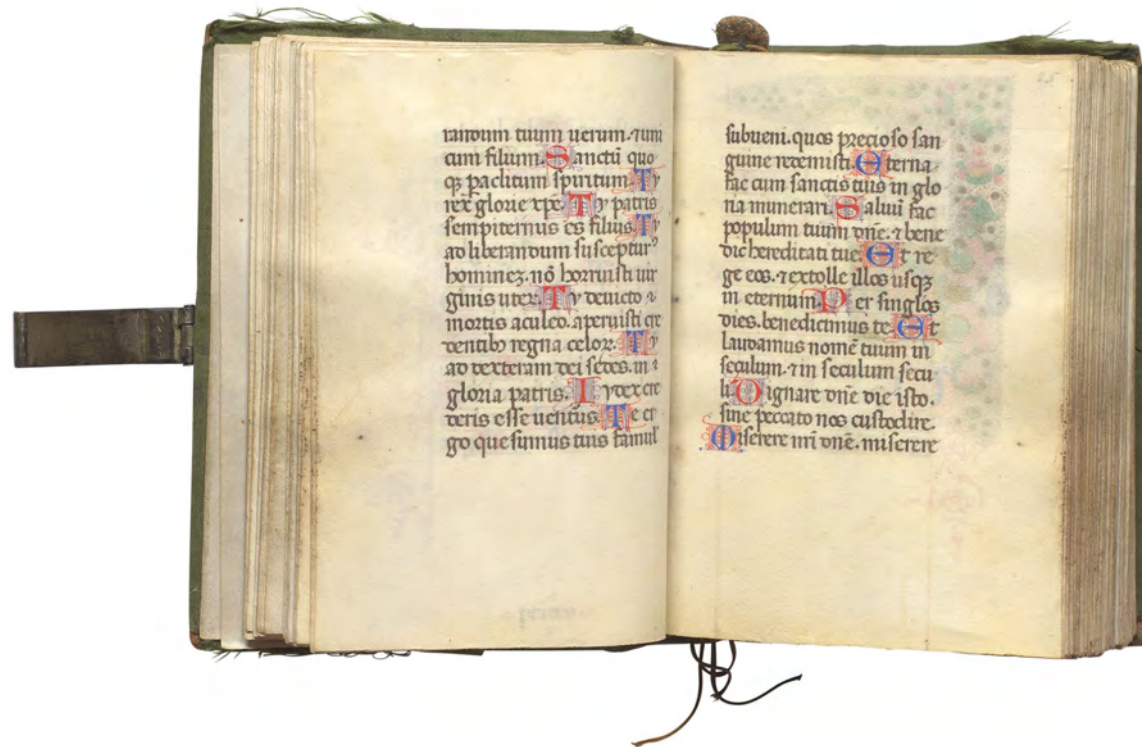 randum tuum uerum. ⁊ uni
cum filium. Sanctū quo
qꝫ paclitum spiritum. Ty
rex glorie xp̄e. Ty patris
sempiternus es filius. Ty
ad liberandum suscepturꝰ
hominez. nō horruisti uir
ginis uter. Ty deuicto ⁊
mortis aculeo. aperuisti cre
dentibꝫ regna celoꝝ. Ty
ad dexteram dei sedes. in ⁊
gloria patris. Iydex cre
deris esse uenturus. Te er
go que sumus tuis famul
subueni. quos precioso san
guine redemisti. Eterna
fac cum sanctis tuis in glo
ria munerari. Saluū fac
populum tuum dn̄e. ⁊ bene
dic hereditati tue. Et re
ge eos. ⁊ extolle illos usqꝫ
in eternum. Per singlos
dies. benedicimus te. Et
laudamus nomē tuum in
seculum. ⁊ in seculum secu
li. Dignare dn̄e die isto.
sine peccato nos custodire.
Miserere nr̄i dn̄e. miserere